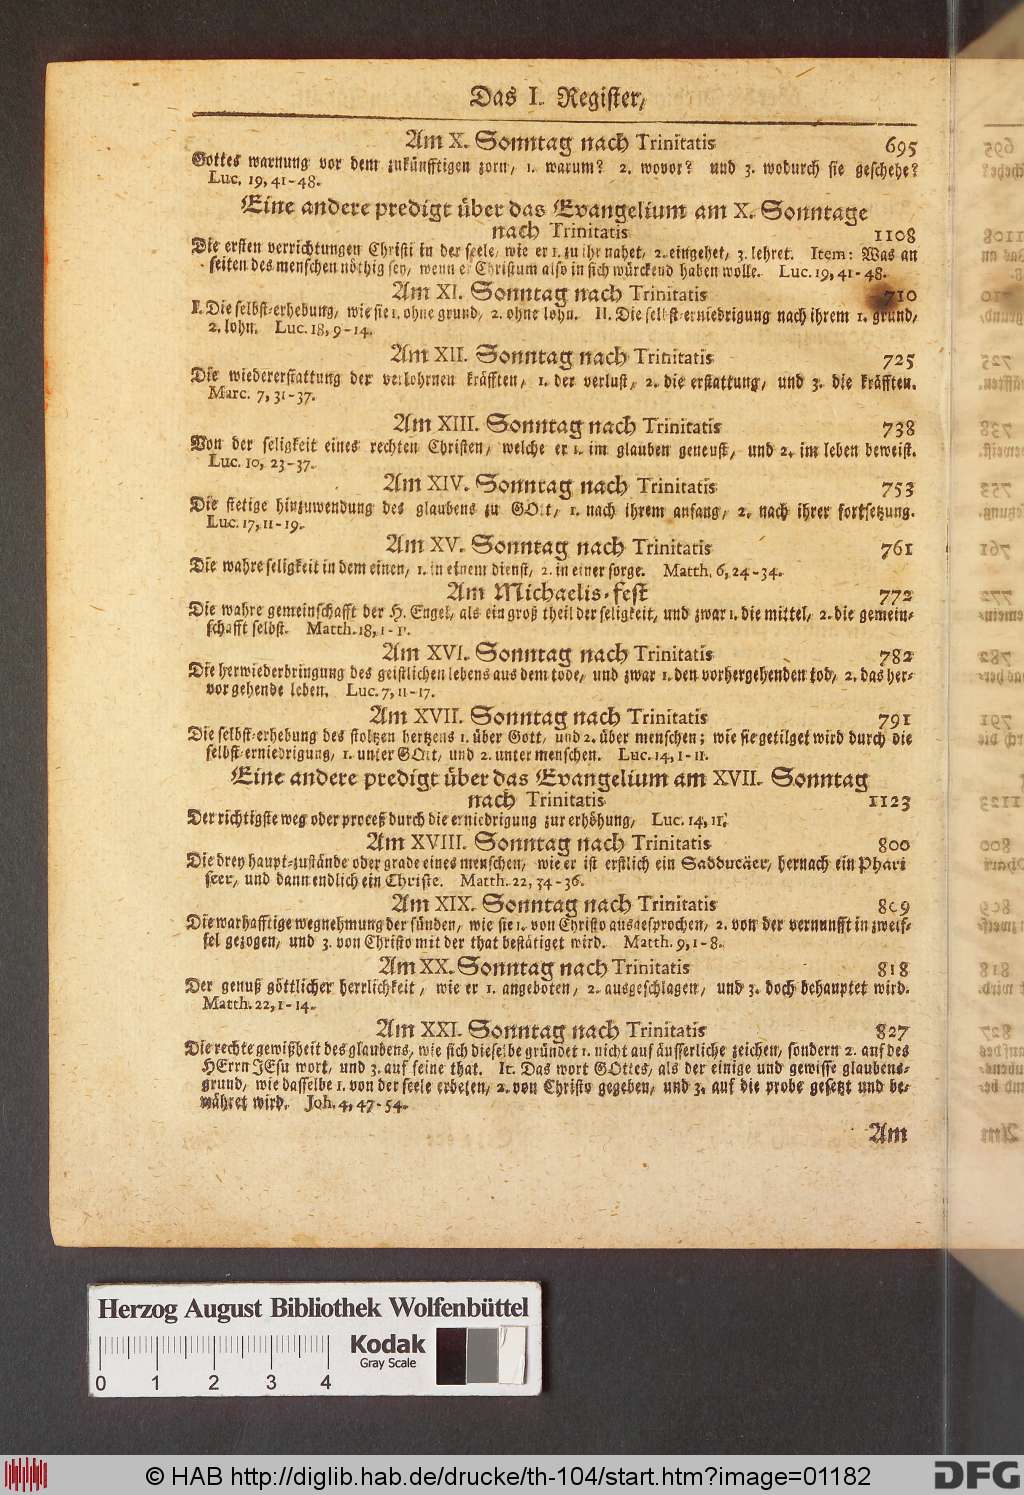 Das I. Register,
Am X. Sonntag nach Trinitatis 695
Gottes warnung vor dem zukünfftigen zorn, 1. warum? 2. wovor? und 3. wodurch sie geschehe?
Luc. 19, 41-48.
Eine andere predigt über das Evangelium am X. Sonntage
nach Trinitatis 1108
Die ersten verrichtungen Christi in der seele, wie er 1. zu ihr nahet, 2. eingehet, 3. lehret. Item: Was an
seiten des menschen nöthig sey, wenn er Christum also in sich würckend haben wolle. Luc. 19, 41-48.
Am XI. Sonntag nach Trinitatis 710
I. Die selbst-erhebung, wie sie 1. ohne grund, 2. ohne lohn. II. Die selbst-erniedrigung nach ihrem 1. grund,
2. lohn. Luc. 18, 9-14.
Am XII. Sonntag nach Trinitatis 725
Die wiedererstattung der verlohrnen kräfften, 1. der verlust, 2. die erstattung, und 3. die kräfften.
Marc. 7, 31-37.
Am XIII. Sonntag nach Trinitatis 738
Von der seligkeit eines rechten Christen, welche er 1. im glauben geneust, und 2. im leben beweist.
Luc. 10, 23-37.
Am XIV. Sonntag nach Trinitatis 753
Die stetige hinzuwendung des glaubens zu GOtt, 1. nach ihrem anfang, 2. nach ihrer fortsetzung.
Luc. 17, 11-19.
Am XV. Sonntag nach Trinitatis 761
Die wahre seligkeit in dem einen, 1. in einem dienst, 2. in einer sorge. Matth. 6, 24-34.
Am Michaelis-fest 772
Die wahre gemeinschafft der H. Engel, als ein groß theil der seligkeit, und zwar 1. die mittel, 2. die gemein-
schafft selbst. Matth. 18, 1-11.
Am XVI. Sonntag nach Trinitatis 782
Die herwiederbringung des geistlichen lebens aus dem tode, und zwar 1. den vorhergehenden tod, 2. das her-
vorgehende leben. Luc. 7, 11-17.
Am XVII. Sonntag nach Trinitatis 791
Die selbst-erhebung des stoltzen hertzens 1. über Gott, und 2. über menschen; wie sie getilget wird durch die
selbst-erniedrigung, 1. unter GOtt, und 2. unter menschen. Luc. 14, 1-11.
Eine andere predigt über das Evangelium am XVII. Sonntag
nach Trinitatis 1123
Der richtigste weg oder proceß durch die erniedrigung zur erhöhung, Luc. 14, 11.
Am XVIII. Sonntag nach Trinitatis 800
Die drey haupt-zustände oder grade eines menschen, wie er ist erstlich ein Sadducäer, hernach ein Phari
seer, und dann endlich ein Christe. Matth. 22, 34-36.
Am XIX. Sonntag nach Trinitatis 809
Die warhafftige wegnehmung der sünden, wie sie 1. von Christo ausgesprochen, 2. von der vernunfft in zweif-
fel gezogen, und 3. von Christo mit der that bestätiget wird. Matth. 9, 1-8.
Am XX. Sonntag nach Trinitatis 818
Der genuß göttlicher herrlichkeit, wie er 1. angeboten, 2. ausgeschlagen, und 3. doch behauptet wird.
Matth. 22, 1-14.
Am XXI. Sonntag nach Trinitatis 827
Die rechte gewißheit des glaubens, wie sich dieselbe gründet 1. nicht auf äusserliche zeichen, sondern 2. auf des
HErrn JEsu wort, und 3. auf seine that. It. Das wort GOttes, als der einige und gewisse glaubens-
grund, wie dasselbe 1. von der seele erbeten, 2. von Christo gegeben, und 3. auf die probe gesetzt und be-
währet wird. Joh. 4, 47-54.
Am
Herzog August Bibliothek Wolfenbüttel
Kodak
Gray Scale
0 1 2 3 4
© HAB http://diglib.hab.de/drucke/th-104/start.htm?image=01182
DFG